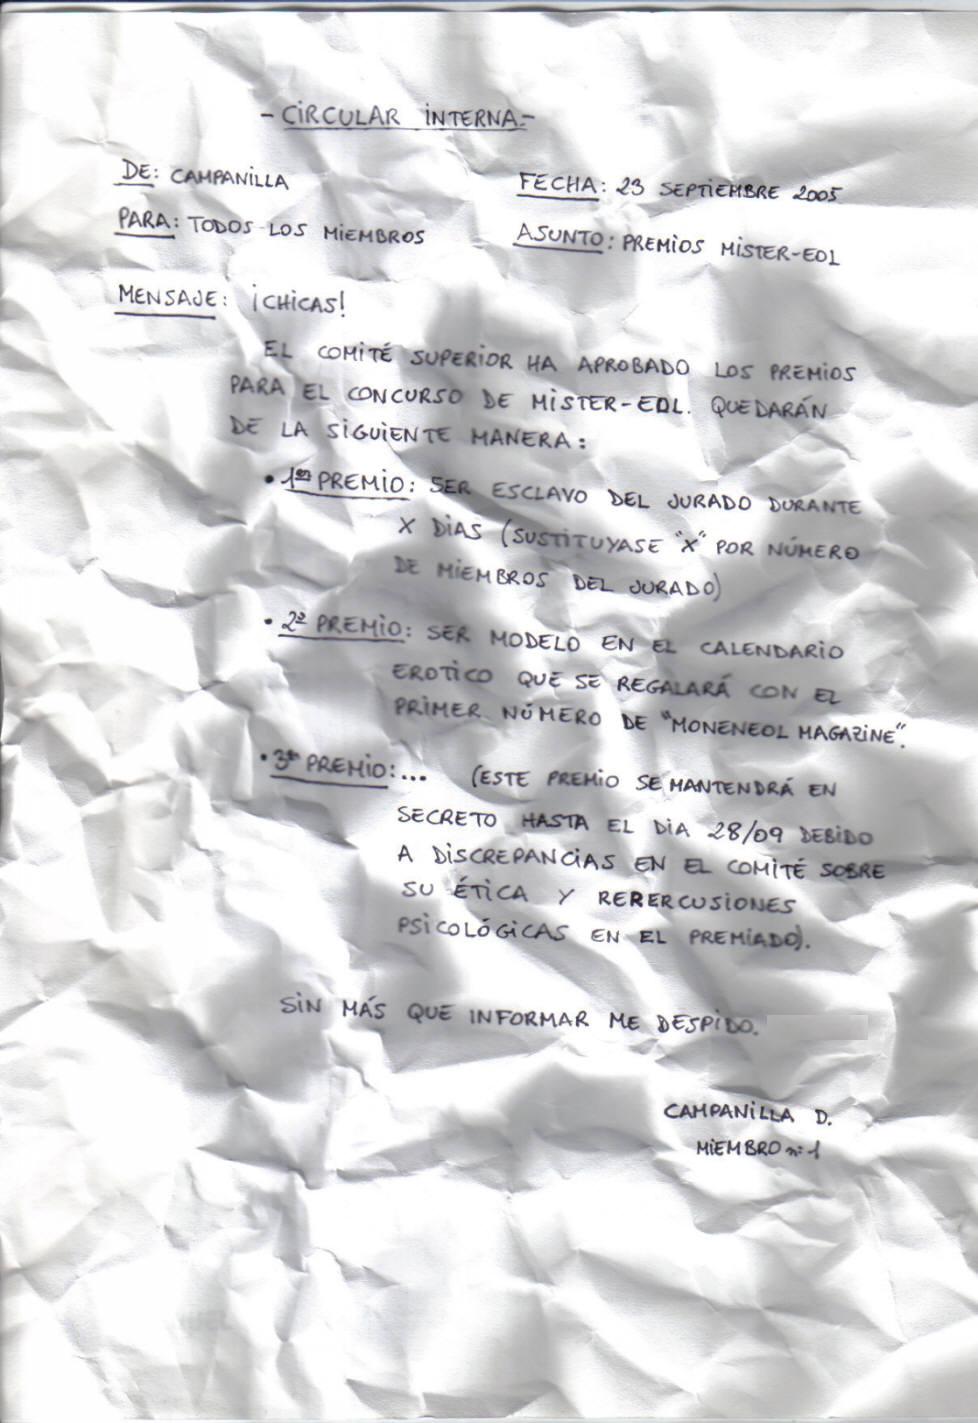 - CIRCULAR INTERNA.-
DE: CAMPANILLA FECHA: 23 SEPTIEMBRE 2005
PARA: TODOS LOS MIEMBROS ASUNTO: PREMIOS MISTER-EOL
MENSAJE: ¡CHICAS!
EL COMITÉ SUPERIOR HA APROBADO LOS PREMIOS
PARA EL CONCURSO DE MISTER-EOL. QUEDARÁN
DE LA SIGUIENTE MANERA:
• 1er PREMIO: SER ESCLAVO DEL JURADO DURANTE
X DIAS (SUSTITUYASE "X" POR NÚMERO
DE MIEMBROS DEL JURADO)
• 2º PREMIO: SER MODELO EN EL CALENDARIO
EROTICO QUE SE REGALARÁ CON EL
PRIMER NÚMERO DE "MONENEOL MAGAZINE".
• 3er PREMIO: ... (ESTE PREMIO SE MANTENDRÁ EN
SECRETO HASTA EL DIA 28/09 DEBIDO
A DISCREPANCIAS EN EL COMITÉ SOBRE
SU ÉTICA Y RERERCUSIONES
PSICOLÓGICAS EN EL PREMIADO).
SIN MÁS QUE INFORMAR ME DESPIDO.
CAMPANILLA D.
MIEMBRO nº 1